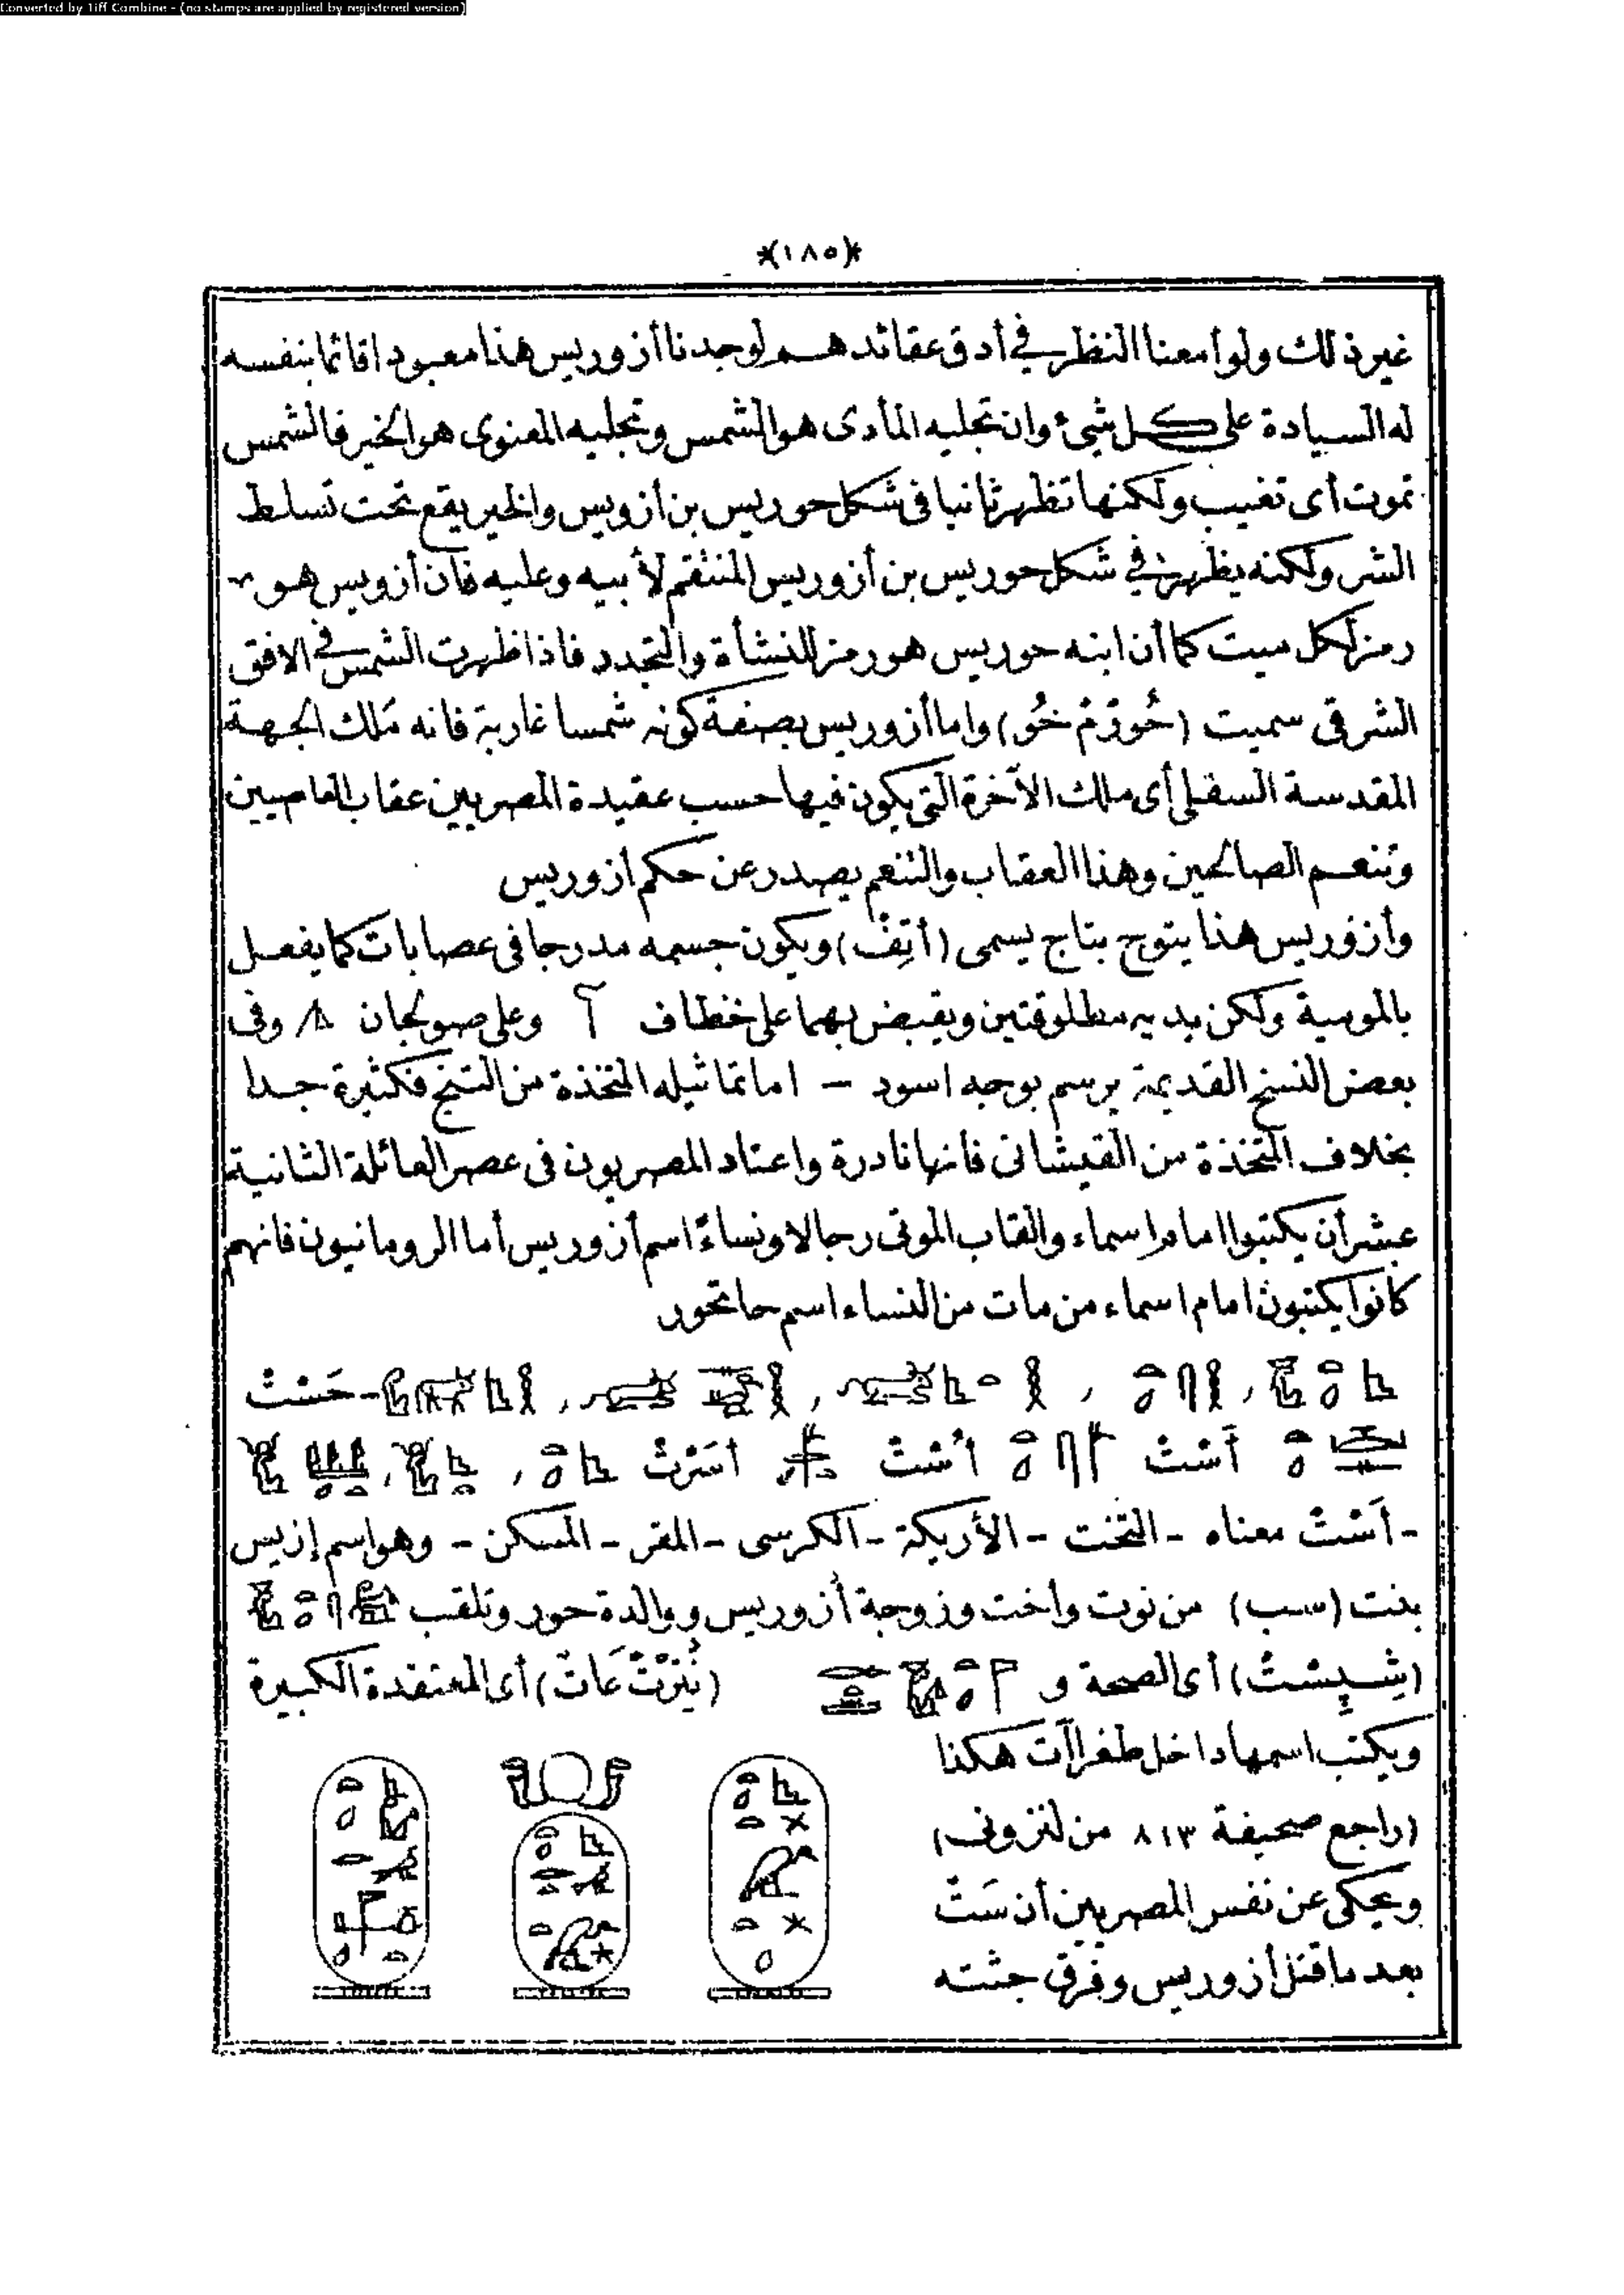 Converted by Tiff Combine - (no stamps are applied by registered version)
*(١٨٥)*
غير ذلك ولو أمعنا النظر في أدق عقائدهم لوجدنا أزوريس هذا معبودا قائما بنفسه
له السيادة على كل شئ وان تجليه المادى هو الشمس وتجليه المعنوى هو الخير فالشمس
تموت أى تغيب ولكنها تظهر ثانيا فى شكل حوريس بن أزوريس والخير يقع تحت تسلط
الشر ولكنه يظهر في شكل حوريس بن أزوريس المنتقم لأبيه وعليه فان أزوريس هو
رمز لكل ميت كما أن ابنه حوريس هو رمز للنشأة والتجدد فاذا ظهرت الشمس في الافق
الشرقى سميت (حُورْمْ خُو) واما أزوريس بصفة كونه شمسا غاربة فانه مَلك الجهة
المقدسة السفلى أى ملك الآخرة التى يكون فيها حسب عقيدة المصريين عقاب العاصيين
وتنعم الصالحين وهذا العقاب والتنعم يصدر عن حكم أزوريس
وأزوريس هذا يتوج بتاج يسمى (أتِفْ) ويكون جسمه مدرجا فى عصابات كما يفعل
بالمومية ولكن يديه مطلوقتين ويقبض بهما على خطاف وعلى صولجان وفى
بعض النسخ القديمة يرسم بوجه اسود – اما تماثيله المتخذة من التنج فكثيرة جدا
بخلاف المتخذة من القيشانى فانها نادرة واعتاد المصريون فى عصر العائلة الثانية
عشر أن يكتبوا امام اسماء والقاب الموتى رجالا ونساءً اسم أزوريس أما الرومانيون فانهم
كانوا يكتبون امام اسماء من مات من النساء اسم حاتحور
- حَسْتْ
أَسْتْ أُسْتْ اسَرْتْ
- أَسْتْ معناه - التخت - الأريكة - الكرسى - المقر - المسكن - وهو اسم إزيس
بنت (سب) من نوت واخت وزوجة أزوريس ووالدة حور وتلقب
(شِپِسْتْ) أى الصحة و (نُتِرْتْ عَاتْ) أى المعتقدة الكبيرة
ويكتب اسمها داخل طغراآت هكذا
(راجع صحيفة ٨١٣ من لنزونى)
ويحكى عن نفس المصريين أن سَتْ
بعد ما قتل أزوريس وفرق جثته